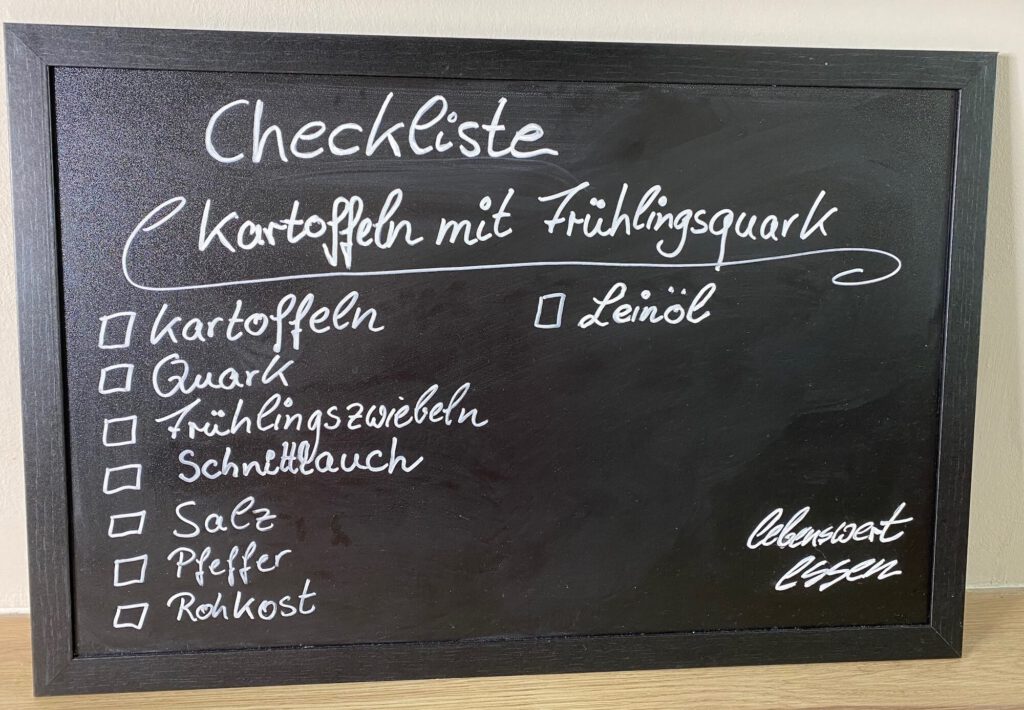 Checkliste
Kartoffeln mit Frühlingsquark
Kartoffeln
Quark
Frühlingszwiebeln
Schnittlauch
Salz
Pfeffer
Rohkost
Leinöl
lebenswert
essen